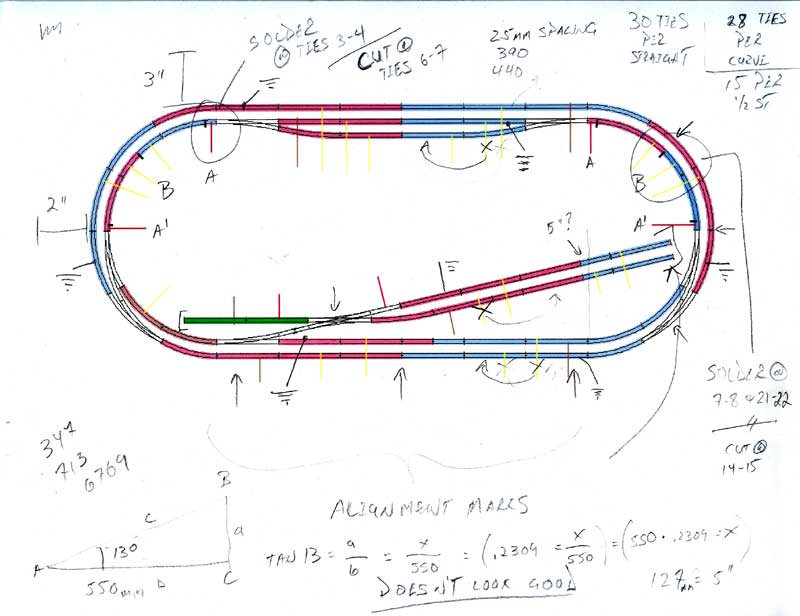 SOLDER
@ TIES 3-4
CUT @
TIES 6-7
25MM SPACING
390
440
30 TIES
PER
STRAIGHT
28 TIES
PER
CURVE
15 PER
½ ST
3"
A
A
A
B
B
2"
A'
A'
5"?
X
X
X
X
SOLDER @
7-8 & 21-22
CUT @
14-15
347
713
6769
ALIGNMENT MARKS
B
C
a
A
130
550mm
C
TAN 13 = a/b = X/550 = (.2309 = X/550) = (550 · .2309 = X)
DOESN'T LOOK GOOD
127mm = 5"